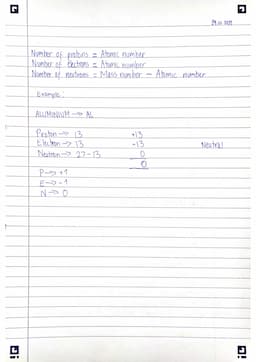 Number of protons = Atomic number
Number of electrons = Atomic number
Number of neutrons = Mass number - Atomic number
Example:
ALUMINIUM → AL
Proton → 13 +13
Electron → 13 -13 Neutral
Neutron → 27-13 0
0
P → +1
E → -1
N → 0